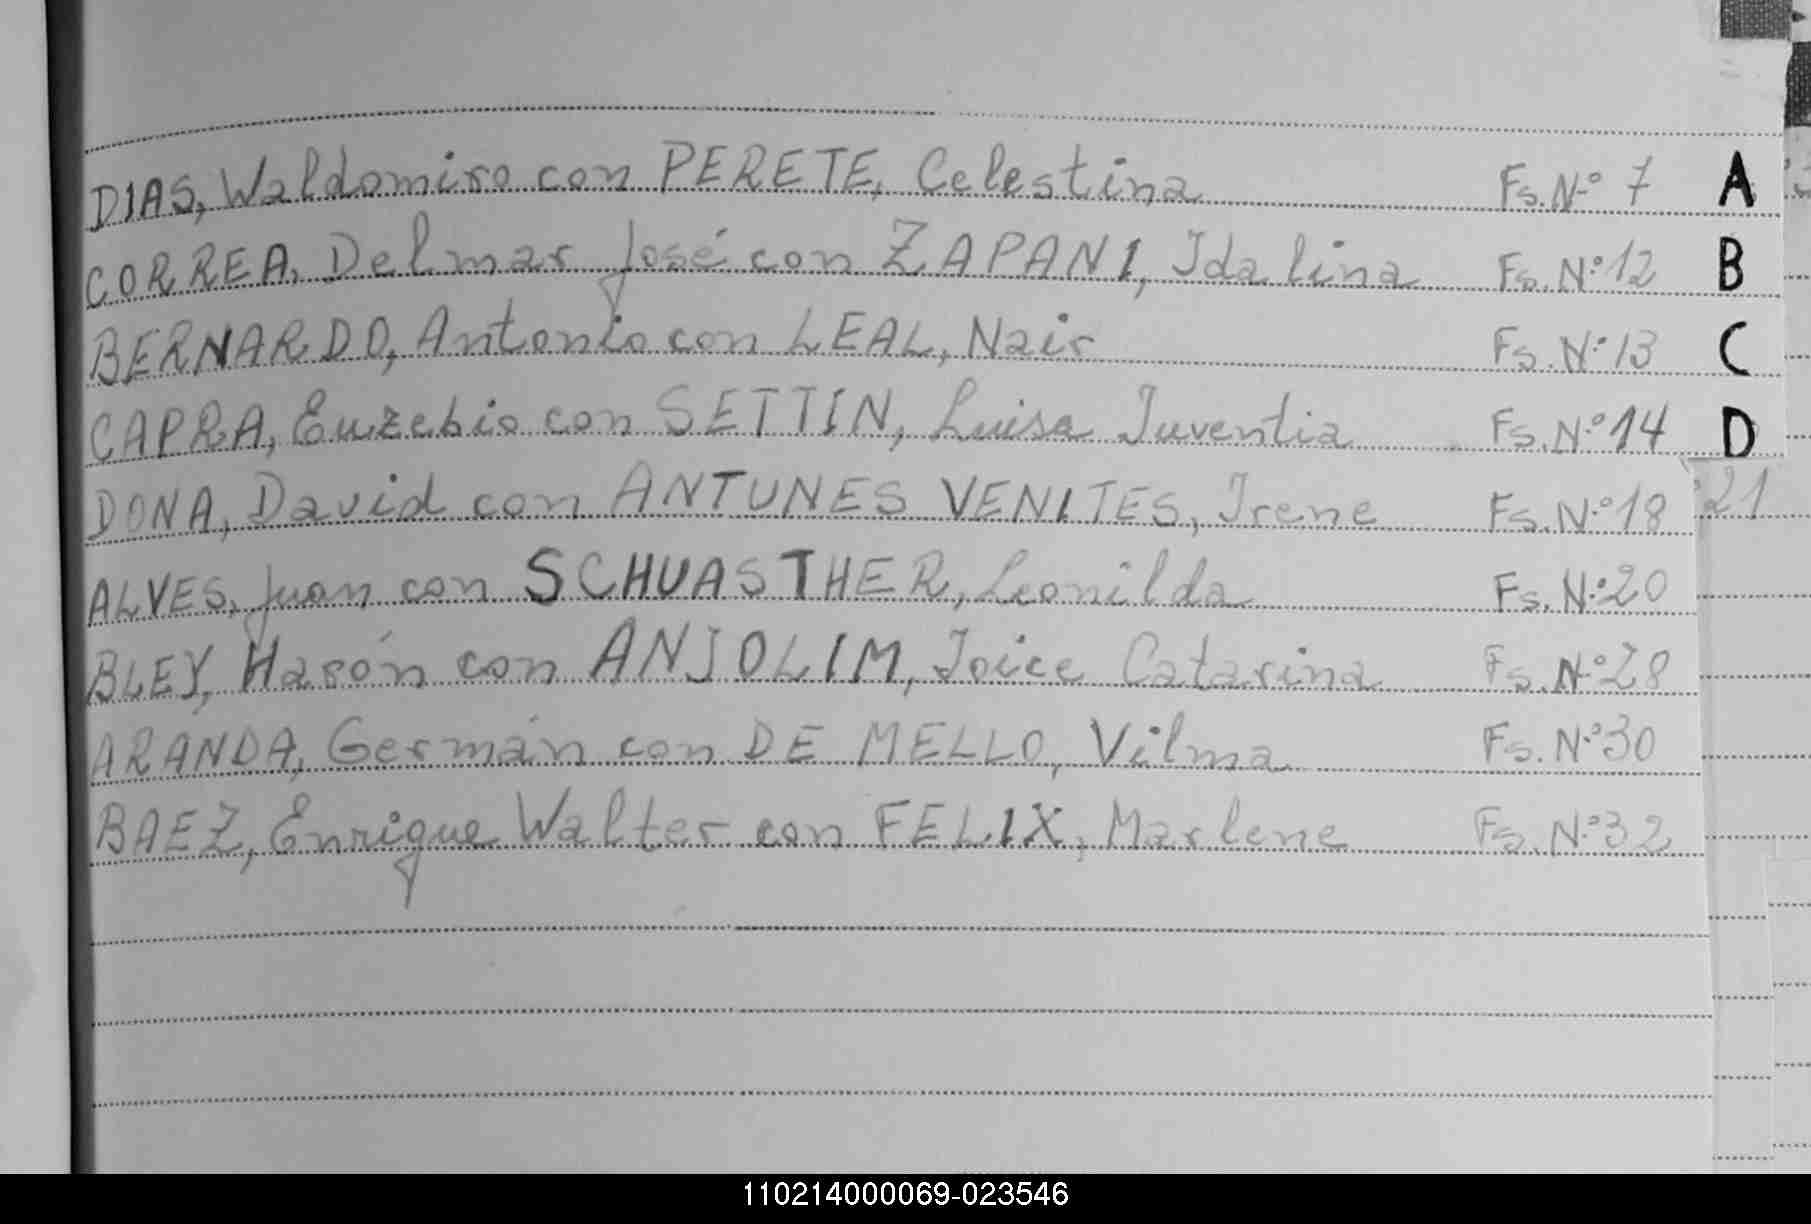 DIAS, Waldomiro con PERETE, Celestina Fs. Nº 7 A
CORREA, Delmar José con ZAPANI, Idalina Fs. Nº 12 B
BERNARDO, Antonio con LEAL, Nair Fs. Nº 13 C
CAPRA, Euzebio con SETTIN, Luisa Juventia Fs. Nº 14 D
DONA, David con ANTUNES VENITES, Irene Fs. Nº 18 21
ALVES, Juan con SCHUASTHER, Leonilda Fs. Nº 20
BLEY, Harón con ANJOLIM, Joice Catarina Fs. Nº 28
ARANDA, Germán con DE MELLO, Vilma Fs. Nº 30
BAEZ, Enrique Walter con FELIX, Marlene Fs. Nº 32
110214000069-023546